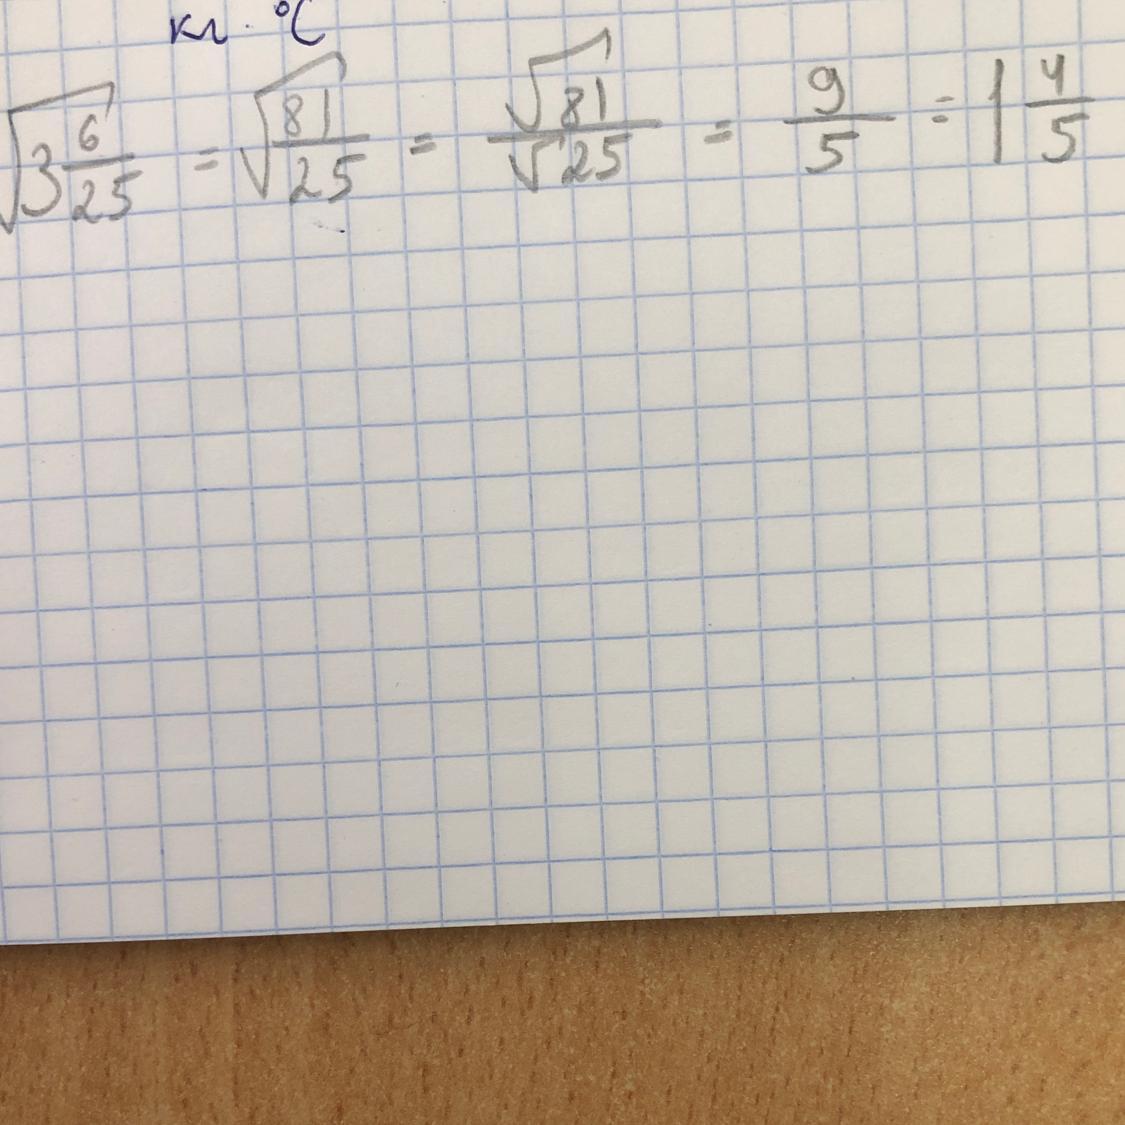 кг · °C
√3 6/25 = √81/25 = √81/√25 = 9/5 = 1 4/5